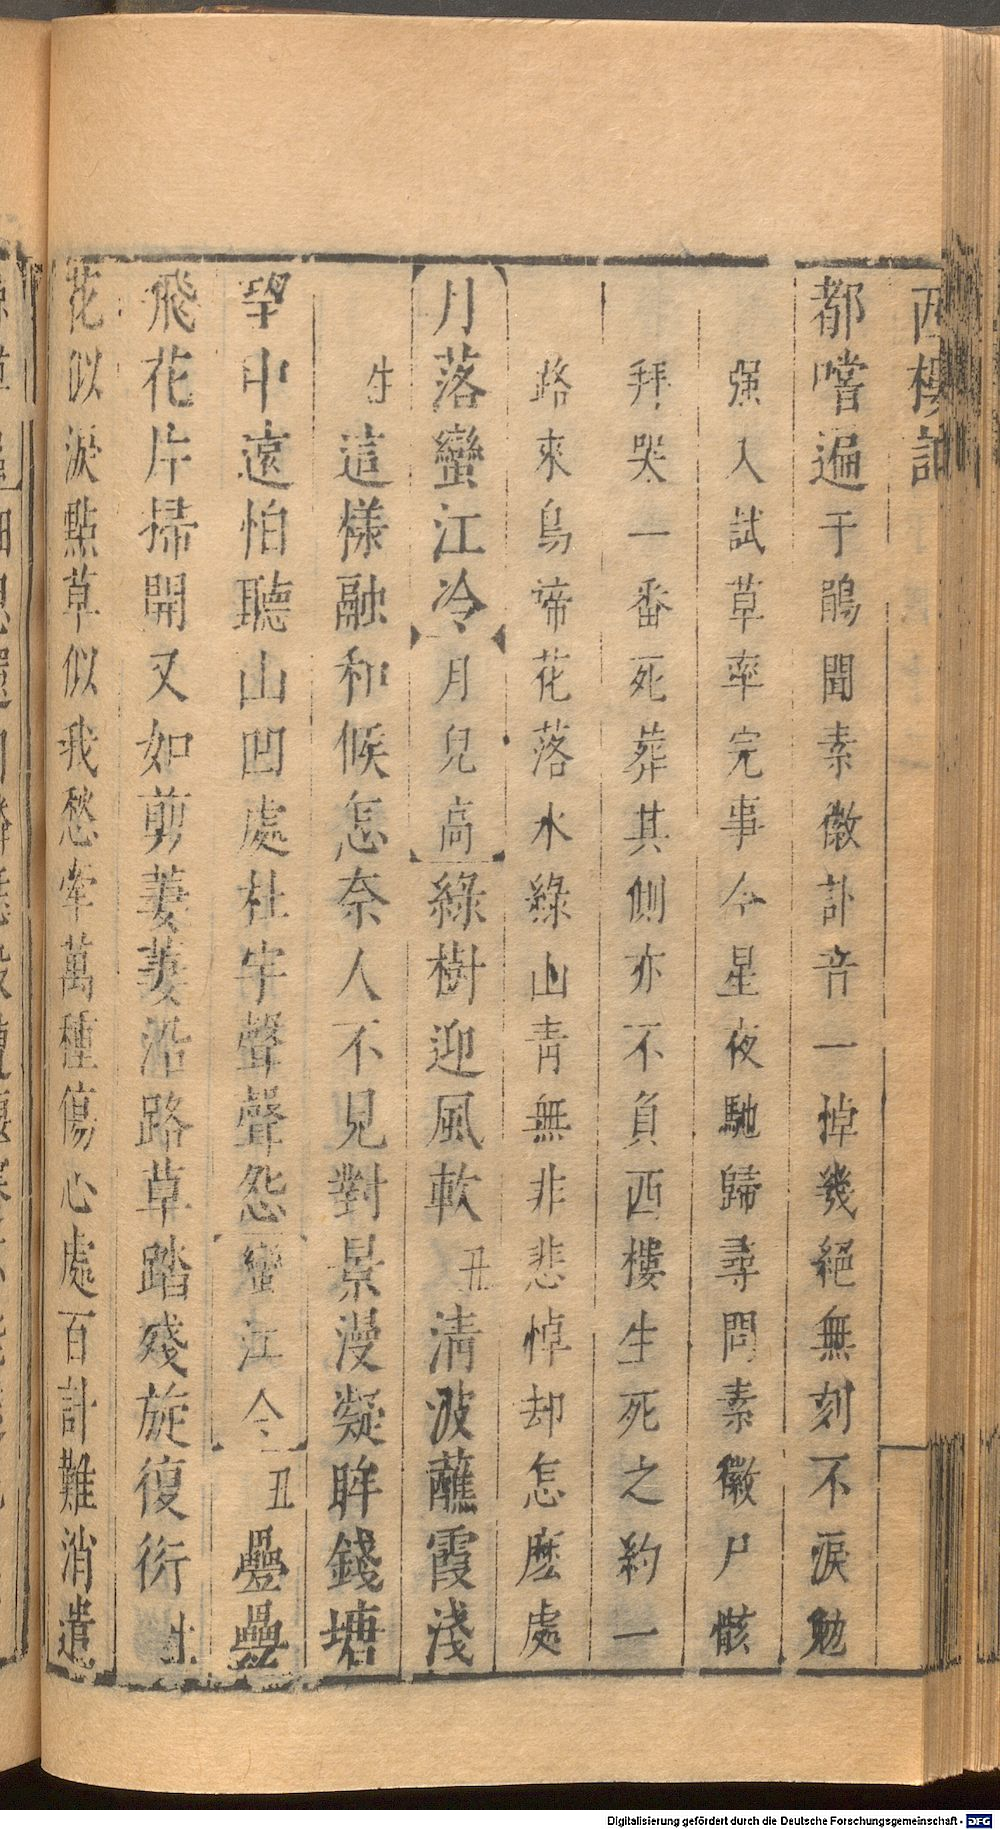 西樓記
都嚐遍于鵑聞素徽訃音一悼幾絕無刻不淚勉
强入試草率完事今星夜馳歸尋問素徽尸骸
拜哭一番死葬其側亦不負西樓生死之約一
路來鳥啼花落水綠山青無非悲悼却怎麽處
月落蠻江冷月兒高綠樹迎風軟丑清波蘸霞淺
生這樣融和候怎奈人不見對景漫凝眸錢塘
望中遠怕聽山凹處杜宇聲聲怨蠻江令丑疊疊
飛花片掃開又如剪萋萋沿路草踏殘旋復衍生
花似淚點草似我愁牽萬種傷心處百計難消遣
Digitalisierung gefördert durch die Deutsche Forschungsgemeinschaft - DFG